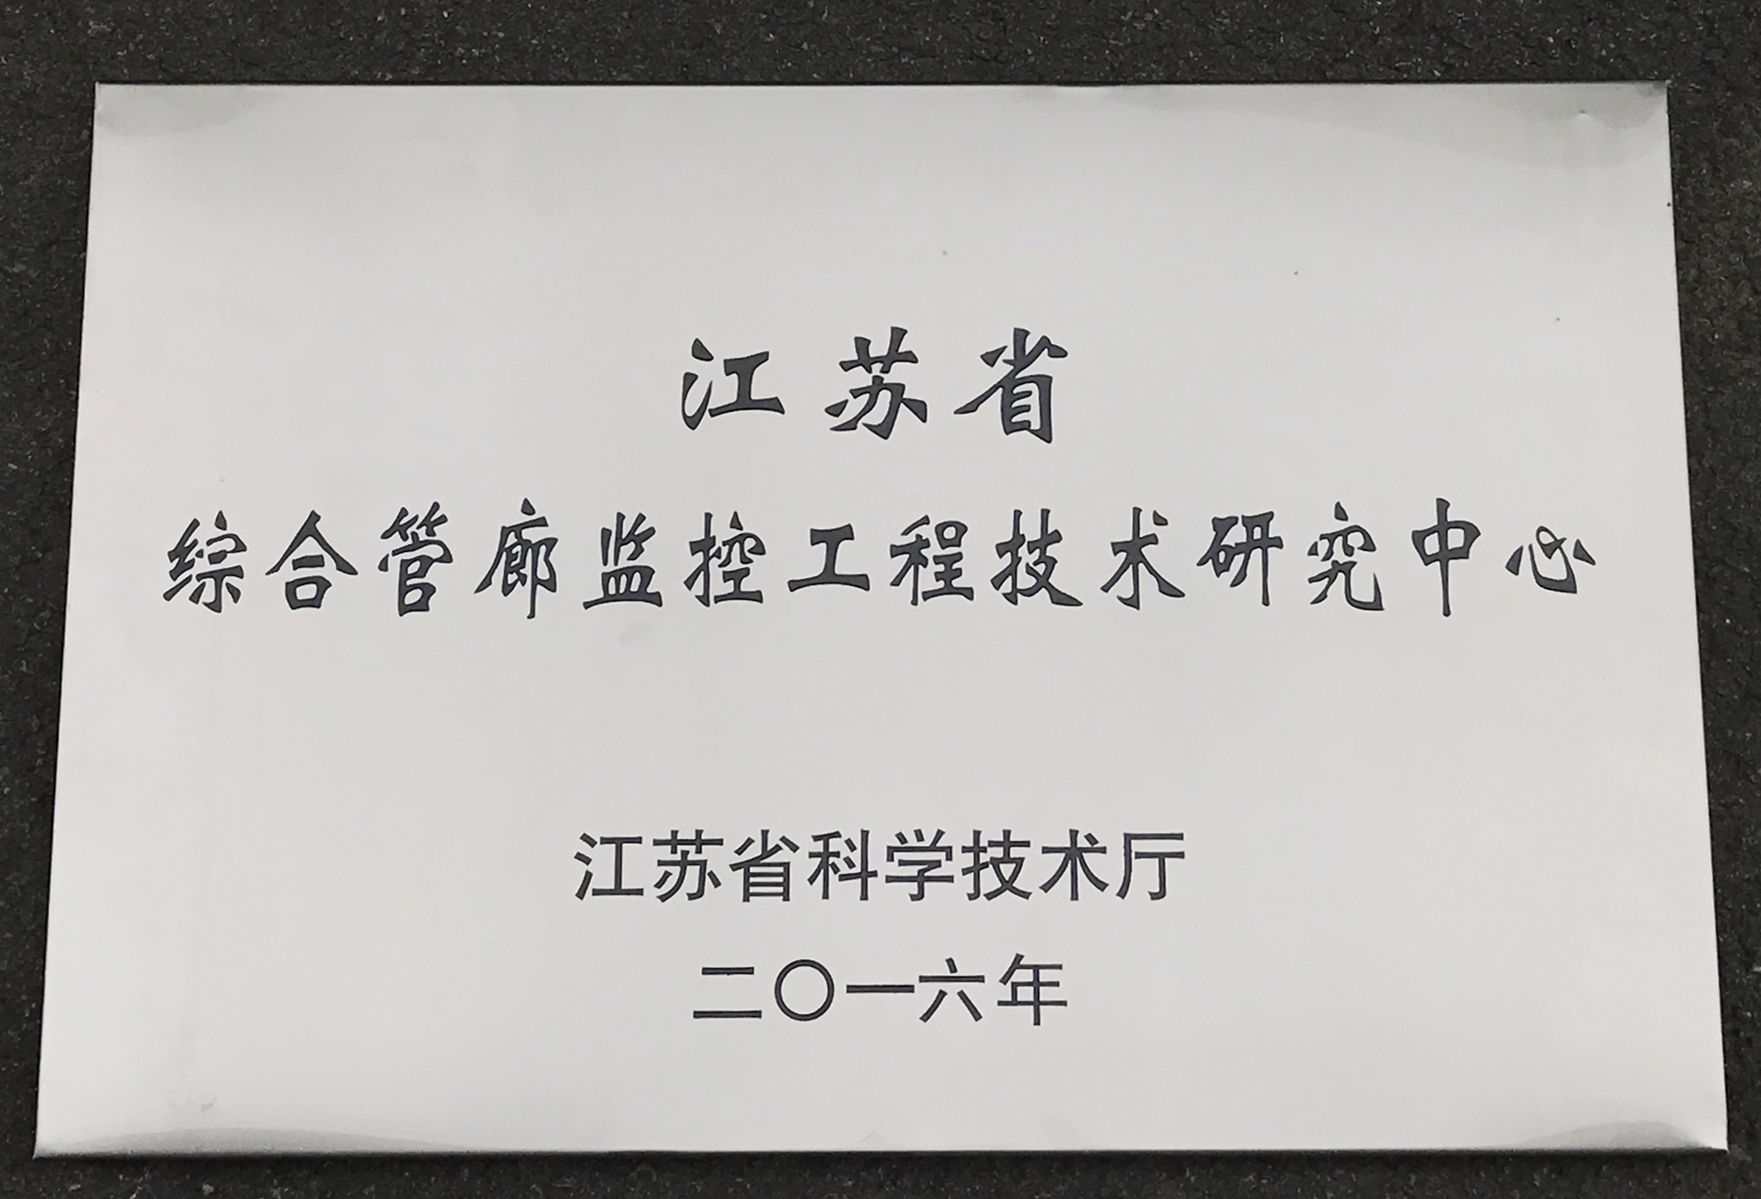 江苏省
综合管廊监控工程技术研究中心
江苏省科学技术厅
二〇一六年